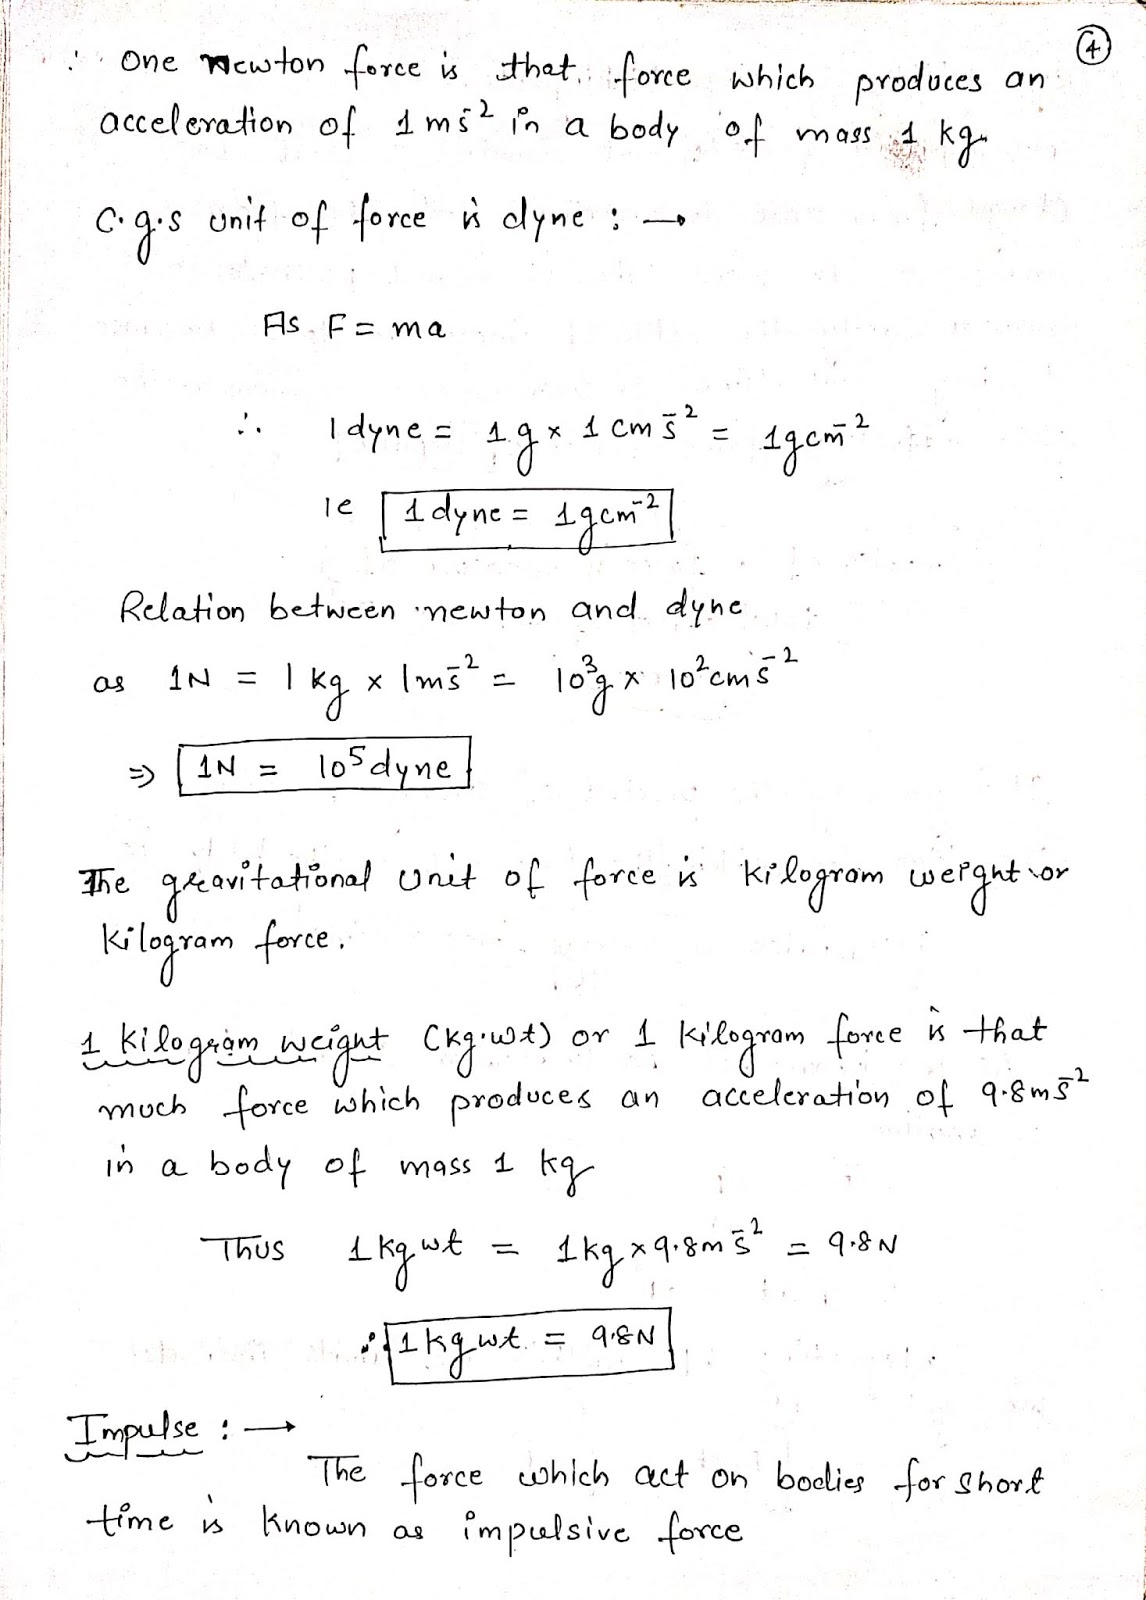 ④
∴ One Newton force is that force which produces an
acceleration of 1 ms⁻² in a body of mass 1 kg.
C.g.s unit of force is dyne : →
As F = ma
∴ 1 dyne = 1g × 1 cm s⁻² = 1gcm⁻²
ie 1 dyne = 1gcm⁻²
Relation between newton and dyne
as 1N = 1 kg × 1ms⁻² = 10³g × 10²cms⁻²
⇒ 1N = 10⁵ dyne
The gravitational unit of force is kilogram weight or
kilogram force.
1 kilogram weight (kg.wt) or 1 kilogram force is that
much force which produces an acceleration of 9.8ms⁻²
in a body of mass 1 kg
Thus 1 kg wt = 1kg × 9.8m s⁻² = 9.8N
∴ 1kg wt = 9.8N
Impulse : →
The force which act on bodies for short
time is known as impulsive force